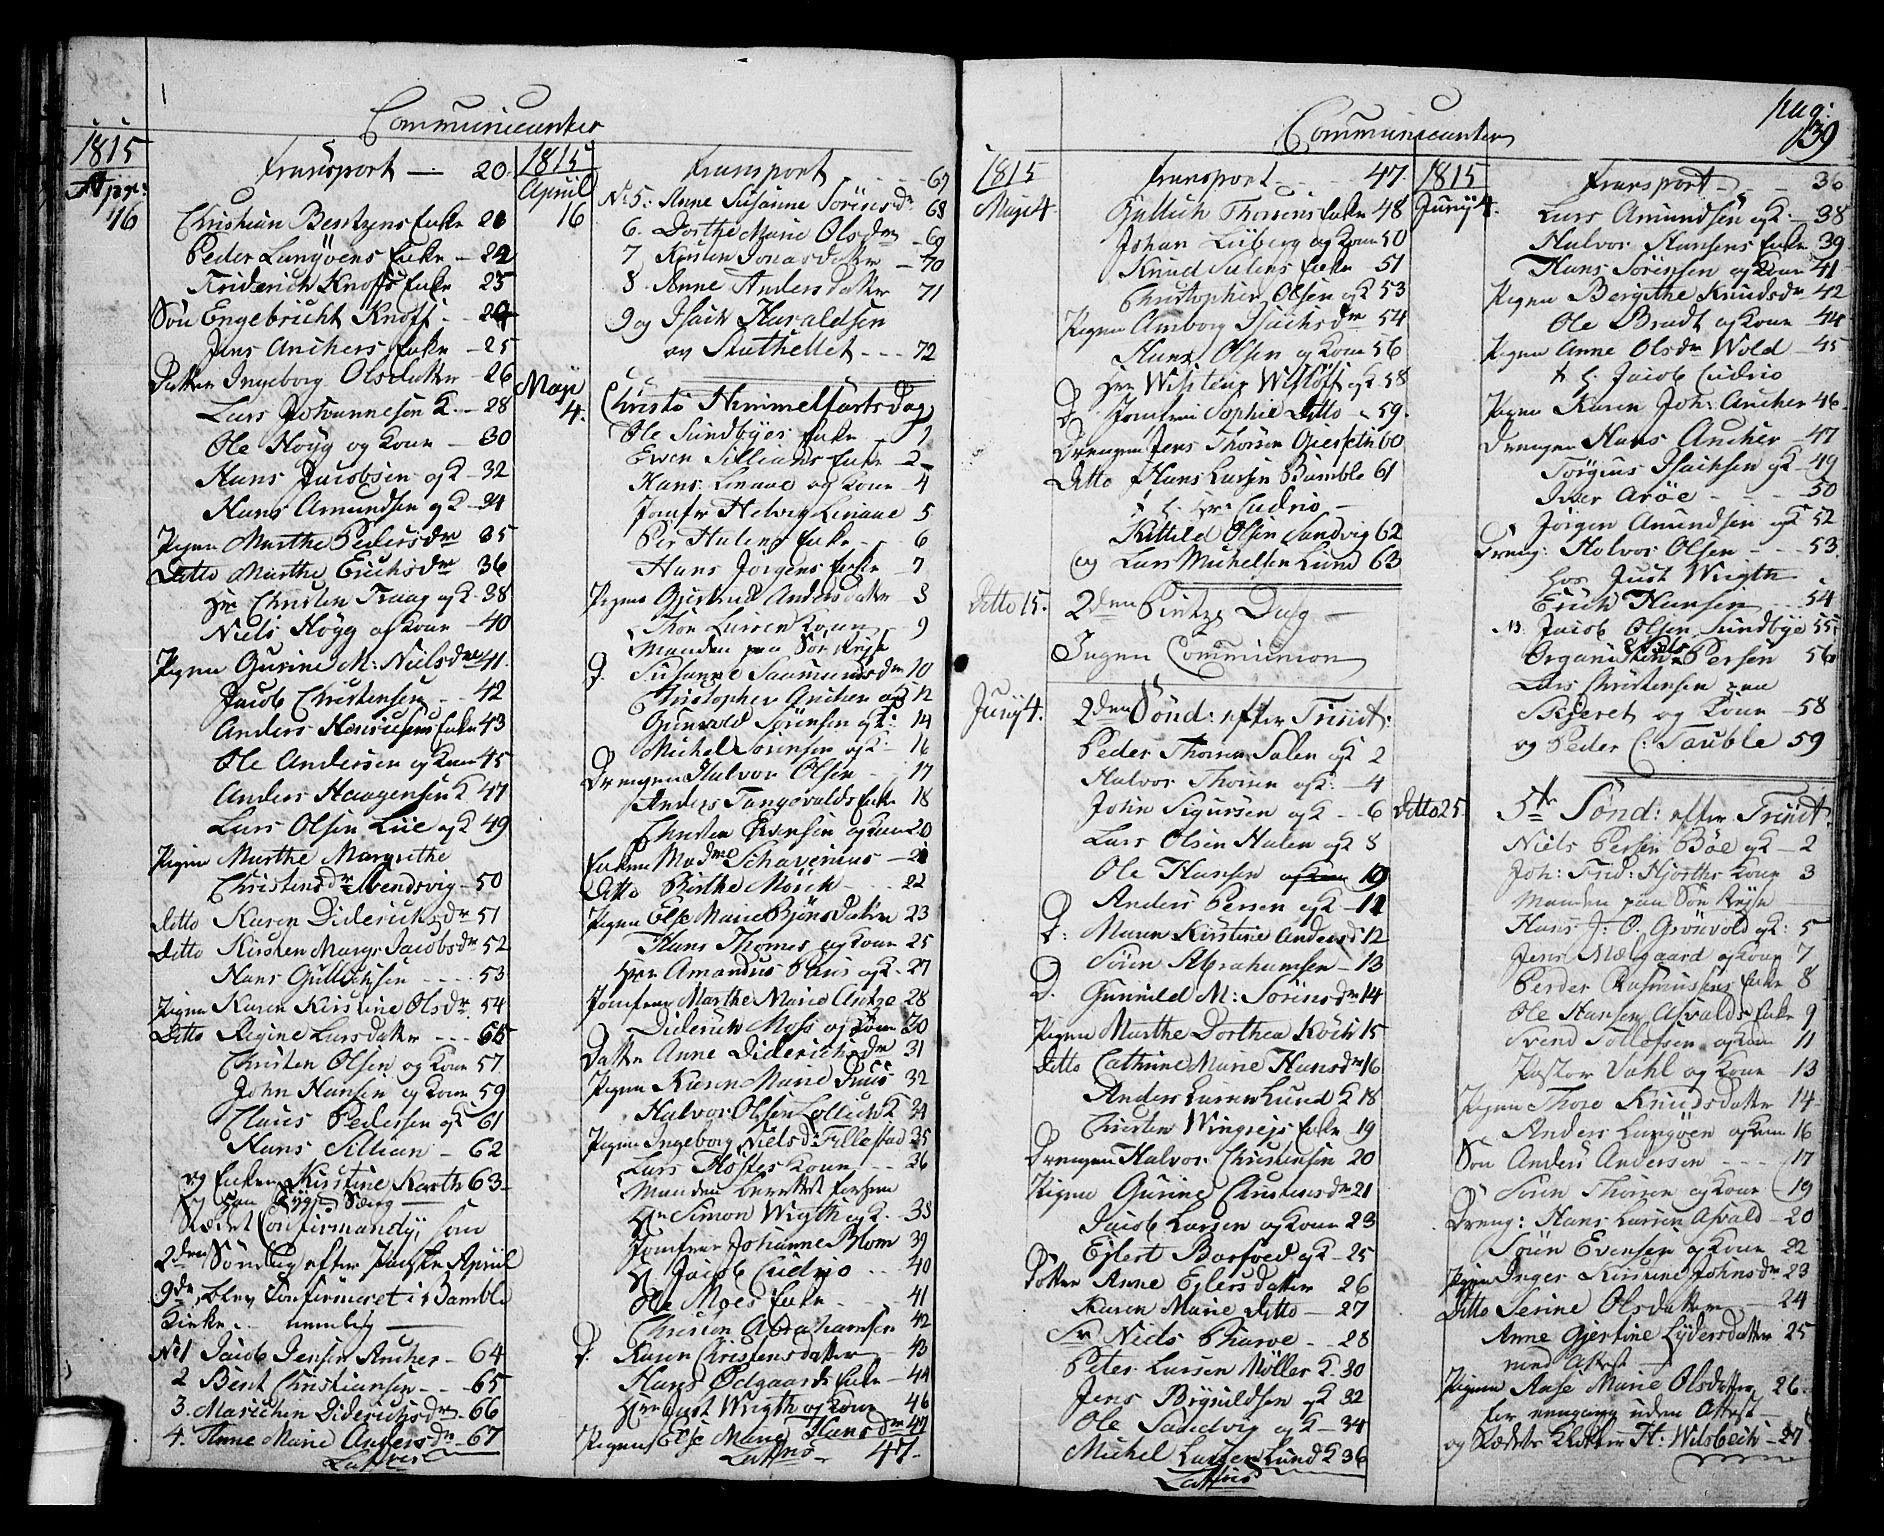 Communicanter
1815
Apr:
16
Transport — 20.
Christian Bentzens Enke 21
Peder Langöens Enke — 22
Friderich Knoffs Enke 23
Sön Engebricht Knoff — 24
Jens Anchers Enke — 25
Datter Ingeborg Olsdatter 26
Lars Johannesen K. — 28
Ole Höyg og Kone — 30
Hans Jacobsen og K — 32
Hans Amundsen og K — 34
Pigen Marthe Pedersdr 35
Ditto Marthe Erichsdr 36
Hr Christen Traag og K — 38
Niels Höyg og Kone — 40
Pigen Gurine M: Nielsdr 41.
Jacob Christensen — 42
Anders Enke 43
Ole Andersen og Kone 45
Anders Haagensen K 47
Lars Olsen Lüe og K 49
Pigen Marthe Margrethe
Christensdr Stendsvig — 50
ditto Karen Dideriksdr 51
ditto Kirsten Margr Jacobsdr 52
Hans Gullichsen — 53
Pigen Karen Kirstine Olsdr. 54
Ditto Regine Larsdatter — 55
Christen Olsen og Kone 57
John Hansen og Kone 59
Claus Pedersen og K 61
Hans Sillian — 62
og Enken Kirstine Karth 63 —
Sædet Confirmandy, som
2den Söndag efter Paaske April
9de, blev Confirmeret i Bamble
Kirke — nemlig —
No 1 Jacob Jensen Ancher — 64
2 Bent Christiansen — 65
3. Marichen Dideriksdr — 66
4. Anne Marie Andersdr — 67
Latus
1815
April
16
Transport — 67
No 5: Anne Susanne Sörensdr 68
6. Dorthe Marie Olsdr — 69
7 Kirsten Jonasdatter — 70
8 Anne Andersdatter 71
9 og Isach Haraldsen
og Stathellet — 72
Maji
4.
Christi Himmelfartsdag
Ole Sundbyes Enke — 1
Even Sillians Enke 2
Hans Linaae og Kone — 4
Jomfr Helvig Linaae 5
Per Hulens Enke — 6
Hans Jörgens Enke — 7
Pigen Gjertrud Andersdatter 8
Thor Larsens Kone — 9
Manden paa Söe Rejse
D. Susanne Saamundsdr 10
Christopher Ancher og K 12
Gunvald Sörensen og K: 14
Michel Sörensen og K — 16
Drengen Halvor Olsen — 17
Anders Tangevalds Enke 18
Christen Evensen og Kone 20
Enken Madme Schavenius — 21
Ditto Birthe Mörch — 22
Pigen Else Marie Bjönsdatter 23
Hans Thomes og Kone 25
Herr Amandus Paus og K. 27
Jomfrue Marthe Marie Antze 28
Diderich Moss og Kone 30
Datter Anne Diderichsdr 31
Pigen Karen Marie Puus 32
Halvor Olsen K 34
Pigen Ingeborg Nielsd: Fillestad 35
Lars Kone — 36
Manden Berettet forhen
Hr Simon Wrigth og K. — 38
Jomfrue Johanne Blom 39
Hr Jacob Cudrio — 40
Ole Moes Enke — 41
Christen Abrahamsen 42
D. Karen Christensdatter — 43
Hans Ödgaards Enke — 44
Herr Just Wrigth og Kone 46
Pigen Else Marie Hansdr 47
Latus — 47.
Communicanter
pag:
139
1815
Maji 4
Transport — 47.
Gullich Thorsens Enke 48
Johan Luberg og Kone 50
Knud Sulens Enke 51
Christopher Olsen og K 53
Pigen Amborg Isachsdr 54
Hans Olsen og Kone 56
Herr Wisting Wislöff og K 58
D Jomfrue Sophie Ditto — 59.
Drengen Jens Thorsen Gierseth 60
Ditto Hans Larsen Bamble 61
t. h. Hr. Cudrio —
Kittild Olsen Sandvig 62
og Lars Michelsen Lund 63
Ditto 15.
2den Pintze Dag —
Ingen Communion
Junij 4.
2den Sönd: efter Trinit:
Peder Thorsen Salen og K 2
Halvor Thorsen og K: — 4
John Sigursen og K — 6
Lars Olsen Halen og K 8
Ole Hansen 9
Anders Persen og K — 11
D: Maren Kirstine Andersd 12
Sören Abrahamsen — 13
D. Gunnild M: Sörensdr 14
Pigen Marthe Dorthea Köch 15
Ditto Cathrine Marie Hansdr 16
Anders Larsen Lund K 18
Christen Wingrejs Enke 19
Drengen Halvor Christensen 20
Pigen Gurine Christensdr 21
Jacob Larsen og Kone 23
Ejlert Barfoed og K — 25
Datter Anne Ejlersdatter 26
Karen Marie Ditto — 27
Sr Niels Tharve — 28
Peter Larsen Møller K. 30
Jens Brynildsen og K 32
Ole Sandvig og K — 34
Michel Larsen Lund K 36
Latus
1815
Junij 4.
Transport — 36
Lars Amundsen og K. — 38
Halvor Hansens Enke 39.
Hans Sörensen og Kone 41
Pigen Bergithe Knudsdr 42
Ole Brudt og Kone — 44
Pigen Anne Olsdr Wold — 45
t. h. Jacob Cudrio
Pigen Karen Joh: Ancher 46
Drengen Hans Ancher — 47
Torgius Isachsen og K — 49
Iver Aröe — 50
Jörgen Amundsen og K 52
Dreng: Halvor Olsen — 53
hos Just Wrigth
Erich Hansen — 54
NB. Jacob Olsen Sundbye 55
Organisten Niels Persen 56
Lars Christensen paa
Skjeret og Kone — 58
og Peder C: Sauble 59
Ditto 25
5te Sönd: efter Trinit.
Niels Persen Böe og K — 2
Joh: Frid: Hjorths Kone 3
Manden paa Söe Rejse
Hans J: P. Grönvold og K: 5
Jens Mælgaard og Kone 7
Perder Rasmussens Enke 8
Ole Hansen Asvalds Enke 9
Svend Tollefsen og Kone 11
Pastor Dahl og Kone 13
Pigen Thore Knudsdatter 14
Anders Langöen og Kone 16
Sön Anders Andersen — 17
Sören Thorsen og Kone 19
Dreng: Hans Larsen Asvald — 20
Sören Evensen og Kone 22
Pigen Inger Kirstine Johnsdr 23
Ditto Serine Olsdatter — 24
Anne Gjertine Lydersdatter 25
med Attest —
Pigen Aase Marie Olsdatter 26.
for nengang uden Attest —
og Stædets Klokker H: Wilsbech — 27